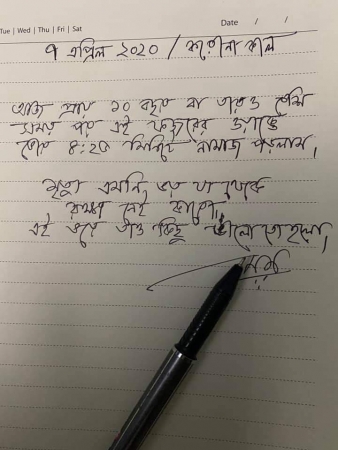 Tue | Wed | Thu | Fri | Sat
Date / /
৭ এপ্রিল ২০২০ / করোনা কাল
আজ প্রায় ১০ বছর বা তারও বেশি
সময় পর এই ফজরের ওয়াক্তে
ভোর ৪:২৫ মিনিটে নামাজ পড়লাম।
মৃত্যু এমনি ভয় যা থেকে
রক্ষা নেই কারো।
এই ভয়ে তাও কিছু ভালো তো হলো।